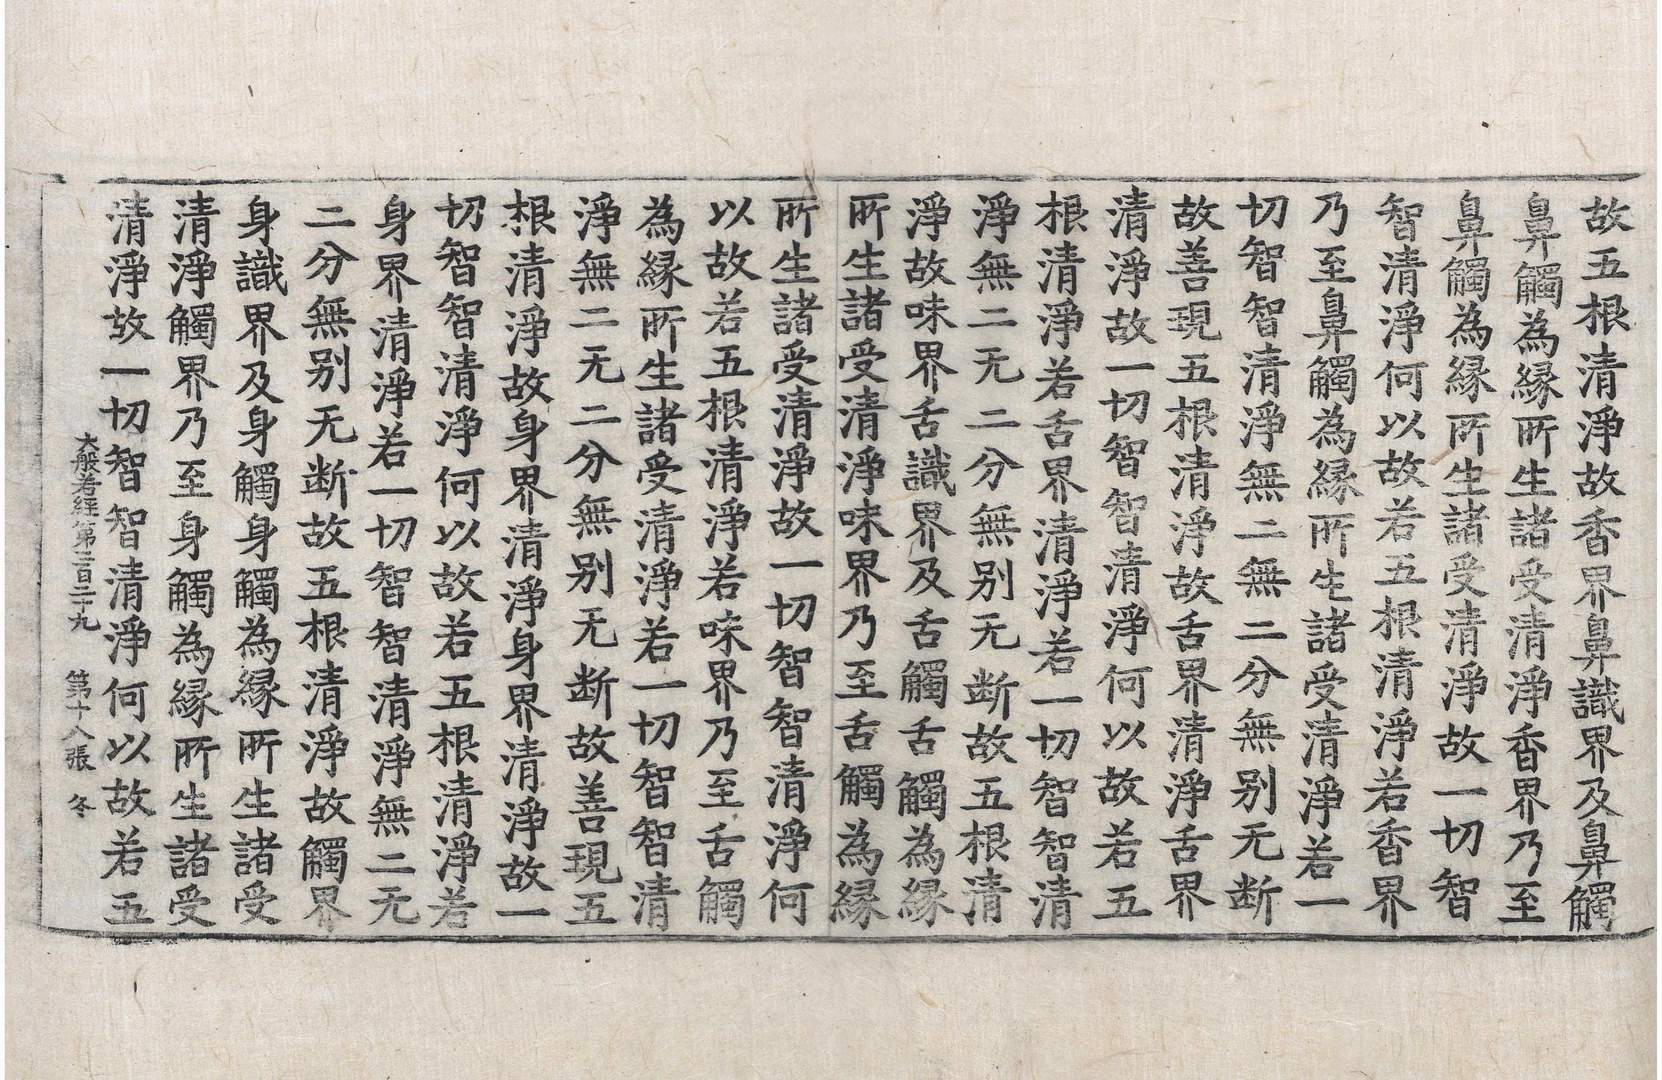 故五根清淨故香界鼻識界及鼻觸
鼻觸為縁所生諸受清淨香界乃至
鼻觸為縁所生諸受清淨故一切智
智清淨何以故若五根清淨若香界
乃至鼻觸為縁所生諸受清淨若一
切智智清淨無二無二分無別无断
故善現五根清淨故舌界清淨舌界
清淨故一切智智清淨何以故若五
根清淨若舌界清淨若一切智智清
淨無二无二分無別无断故五根清
淨故味界舌識界及舌觸舌觸為縁
所生諸受清淨味界乃至舌觸為縁
所生諸受清淨故一切智智清淨何
以故若五根清淨若味界乃至舌觸
為縁所生諸受清淨若一切智智清
淨無二无二分無別无断故善現五
根清淨故身界清淨身界清淨故一
切智智清淨何以故若五根清淨若
身界清淨若一切智智清淨無二无
二分無別无断故五根清淨故觸界
身識界及身觸身觸為縁所生諸受
清淨觸界乃至身觸為縁所生諸受
清淨故一切智智清淨何以故若五
大般若經第二百二十九 第十八張 冬